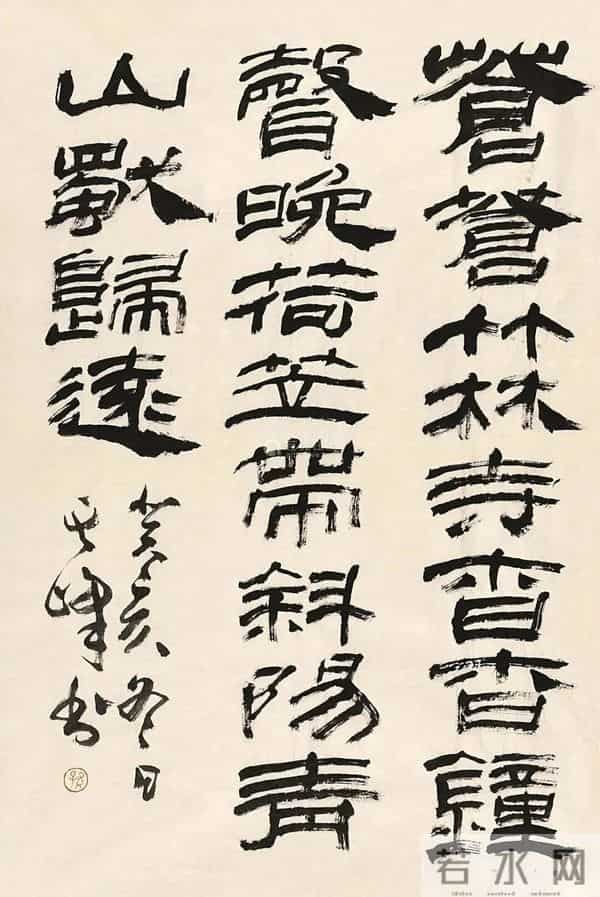 蒼蒼竹林寺杳杳鐘
聲晚荷笠帶斜陽青
山獨歸遠
癸亥冬日
其峰書
若水网